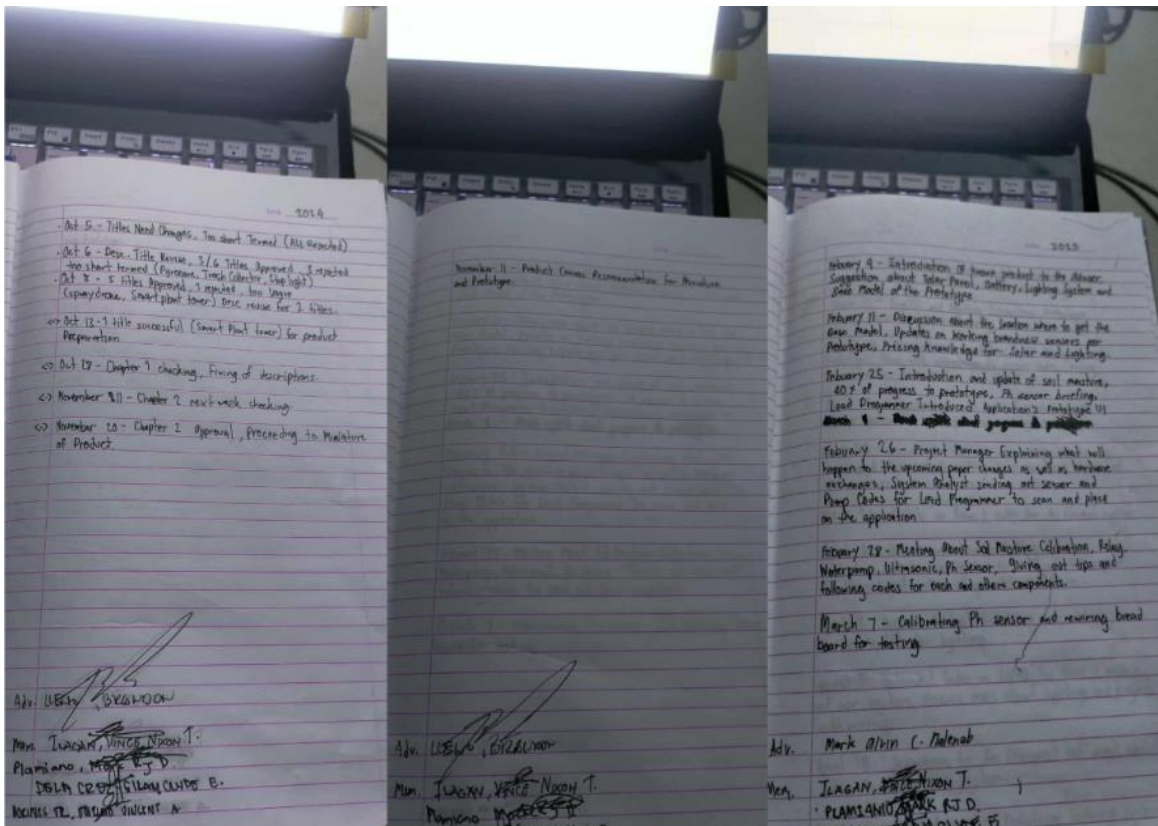 2024
. Oct 5 - Titles Need Changes, Too short Termed (ALL Rejected)
. Oct 6 - Desc. Title Revise, 3/6 Titles Approved, 3 rejected
too short termed (Pyrocone, Trash Collector, Stop light)
. Oct 8 - 5 titles Approved, 1 rejected, too vague
(spray drone, Smart plant tower) Desc revise for 2 titles.
<> Oct 13 - 1 title successful (Smart Plant tower) for product
Preparation
<> Oct 28 - Chapter 1 checking, Fixing of descriptions.
<> November 11 - Chapter 2 next week checking
<> November 20 - Chapter 2 approval, Proceeding to Miniature
of Product.
Adv.
Mem. ILAGAN, VINCE NIXON T.
Plamiano, MARK RJ D.
DELA CRUZ, E.
VINCENT A.
November 11 - Product Canvas Recommendation for Miniature
and Prototype.
Adv.
Mem. ILAGAN, VINCE NIXON T.
Plamiano
2025
Febuary 9 - Introduction of known product to the Adviser,
Suggestion about Solar Panel, Battery, Lighting System and
Base Model of the Prototype
Febuary 11 - Discussion About the location where to get the
Base Model, Updates on Working sensors per
Prototype, Pricing Knowledge for Solar and Lighting.
Febuary 25 - Introduction and update of soil moisture,
40% of progress to prototype, Ph sensor briefing.
Lead Programmer Introduced Application's Prototype UI
Febuary 26 - Project Manager Explaining what will
happen to the upcoming paper changes as well as hardware
exchanges, System Analyst sending out sensor and
Pump Codes for Lead Programmer to scan and place
on the application
Febuary 28 - Meeting About Soil Moisture Calibration, Relay
Waterpump, Ultrasonic, Ph Sensor, giving out tips and
following codes for each and others components.
March 7 - Calibrating Ph sensor and rewiring bread
board for testing
Adv. Mark Alvin C. Malenab
Mem. ILAGAN, VINCE NIXON T.
PLAMIANO, MARK RJ D.